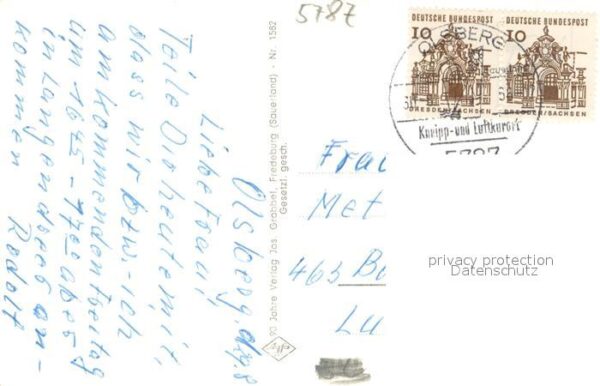 Olsberg,
Liebe Frau,
Teile Dir heute mit,
dass wir bzw. - ich
am kommenden Freitag
um 16.45 - 17
in Langendreer an-
kommen
Rudolf
90 Jahre Verlag Jos. Grobbel, Fredeburg (Sauerland) - Nr. 1582
Gesetzl. gesch.
5787
DEUTSCHE BUNDESPOST
10
DRESDEN/SACHSEN
DEUTSCHE BUNDESPOST
10
DRESDEN/SACHSEN
OLSBERG
Kneipp- und Luftkurort
5787
Frau
Met
463 Bo
Lu
privacy protection
Datenschutz